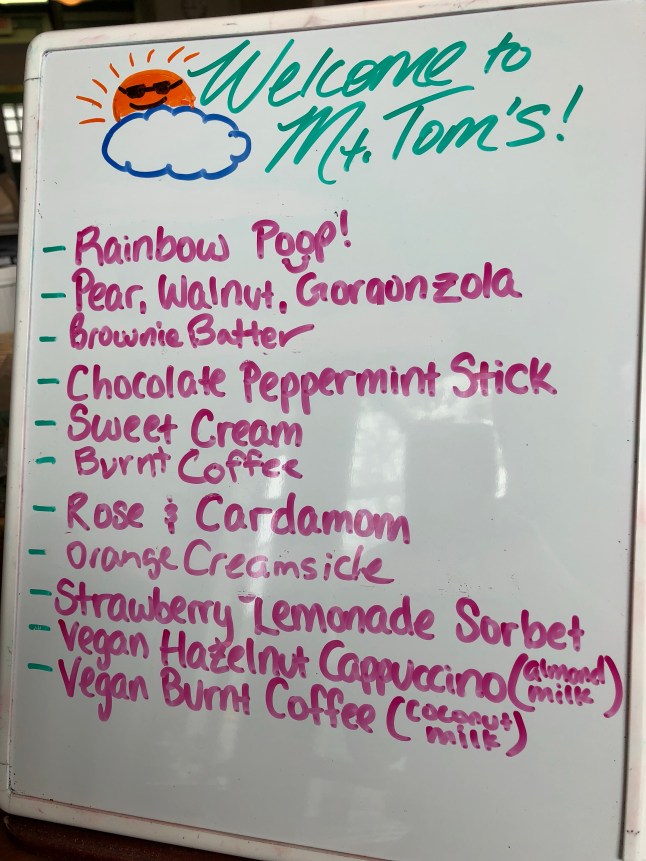 Welcome to
Mt. Tom's!
- Rainbow Poop!
- Pear, Walnut, Gorgonzola
- Brownie Batter
- Chocolate Peppermint Stick
- Sweet Cream
- Burnt Coffee
- Rose & Cardamom
- Orange Creamsicle
- Strawberry Lemonade Sorbet
- Vegan Hazelnut Cappuccino (almond milk)
- Vegan Burnt Coffee (coconut milk)